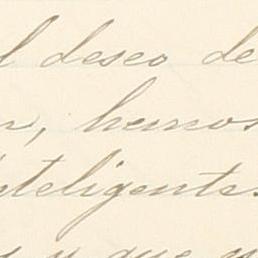 l deseo de
, hemos
inteligentes
y que